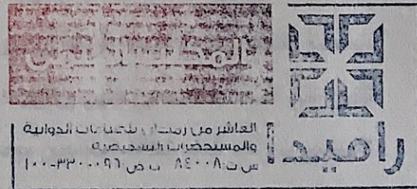 المكتب العلمي
راميدا
العاشر من رمضان للصناعات الدوائية
والمستحضرات التشخيصية
س ت: ٨٤٠٠٨ ب ض: ٠٩٦-٣٣٠-١٠٠